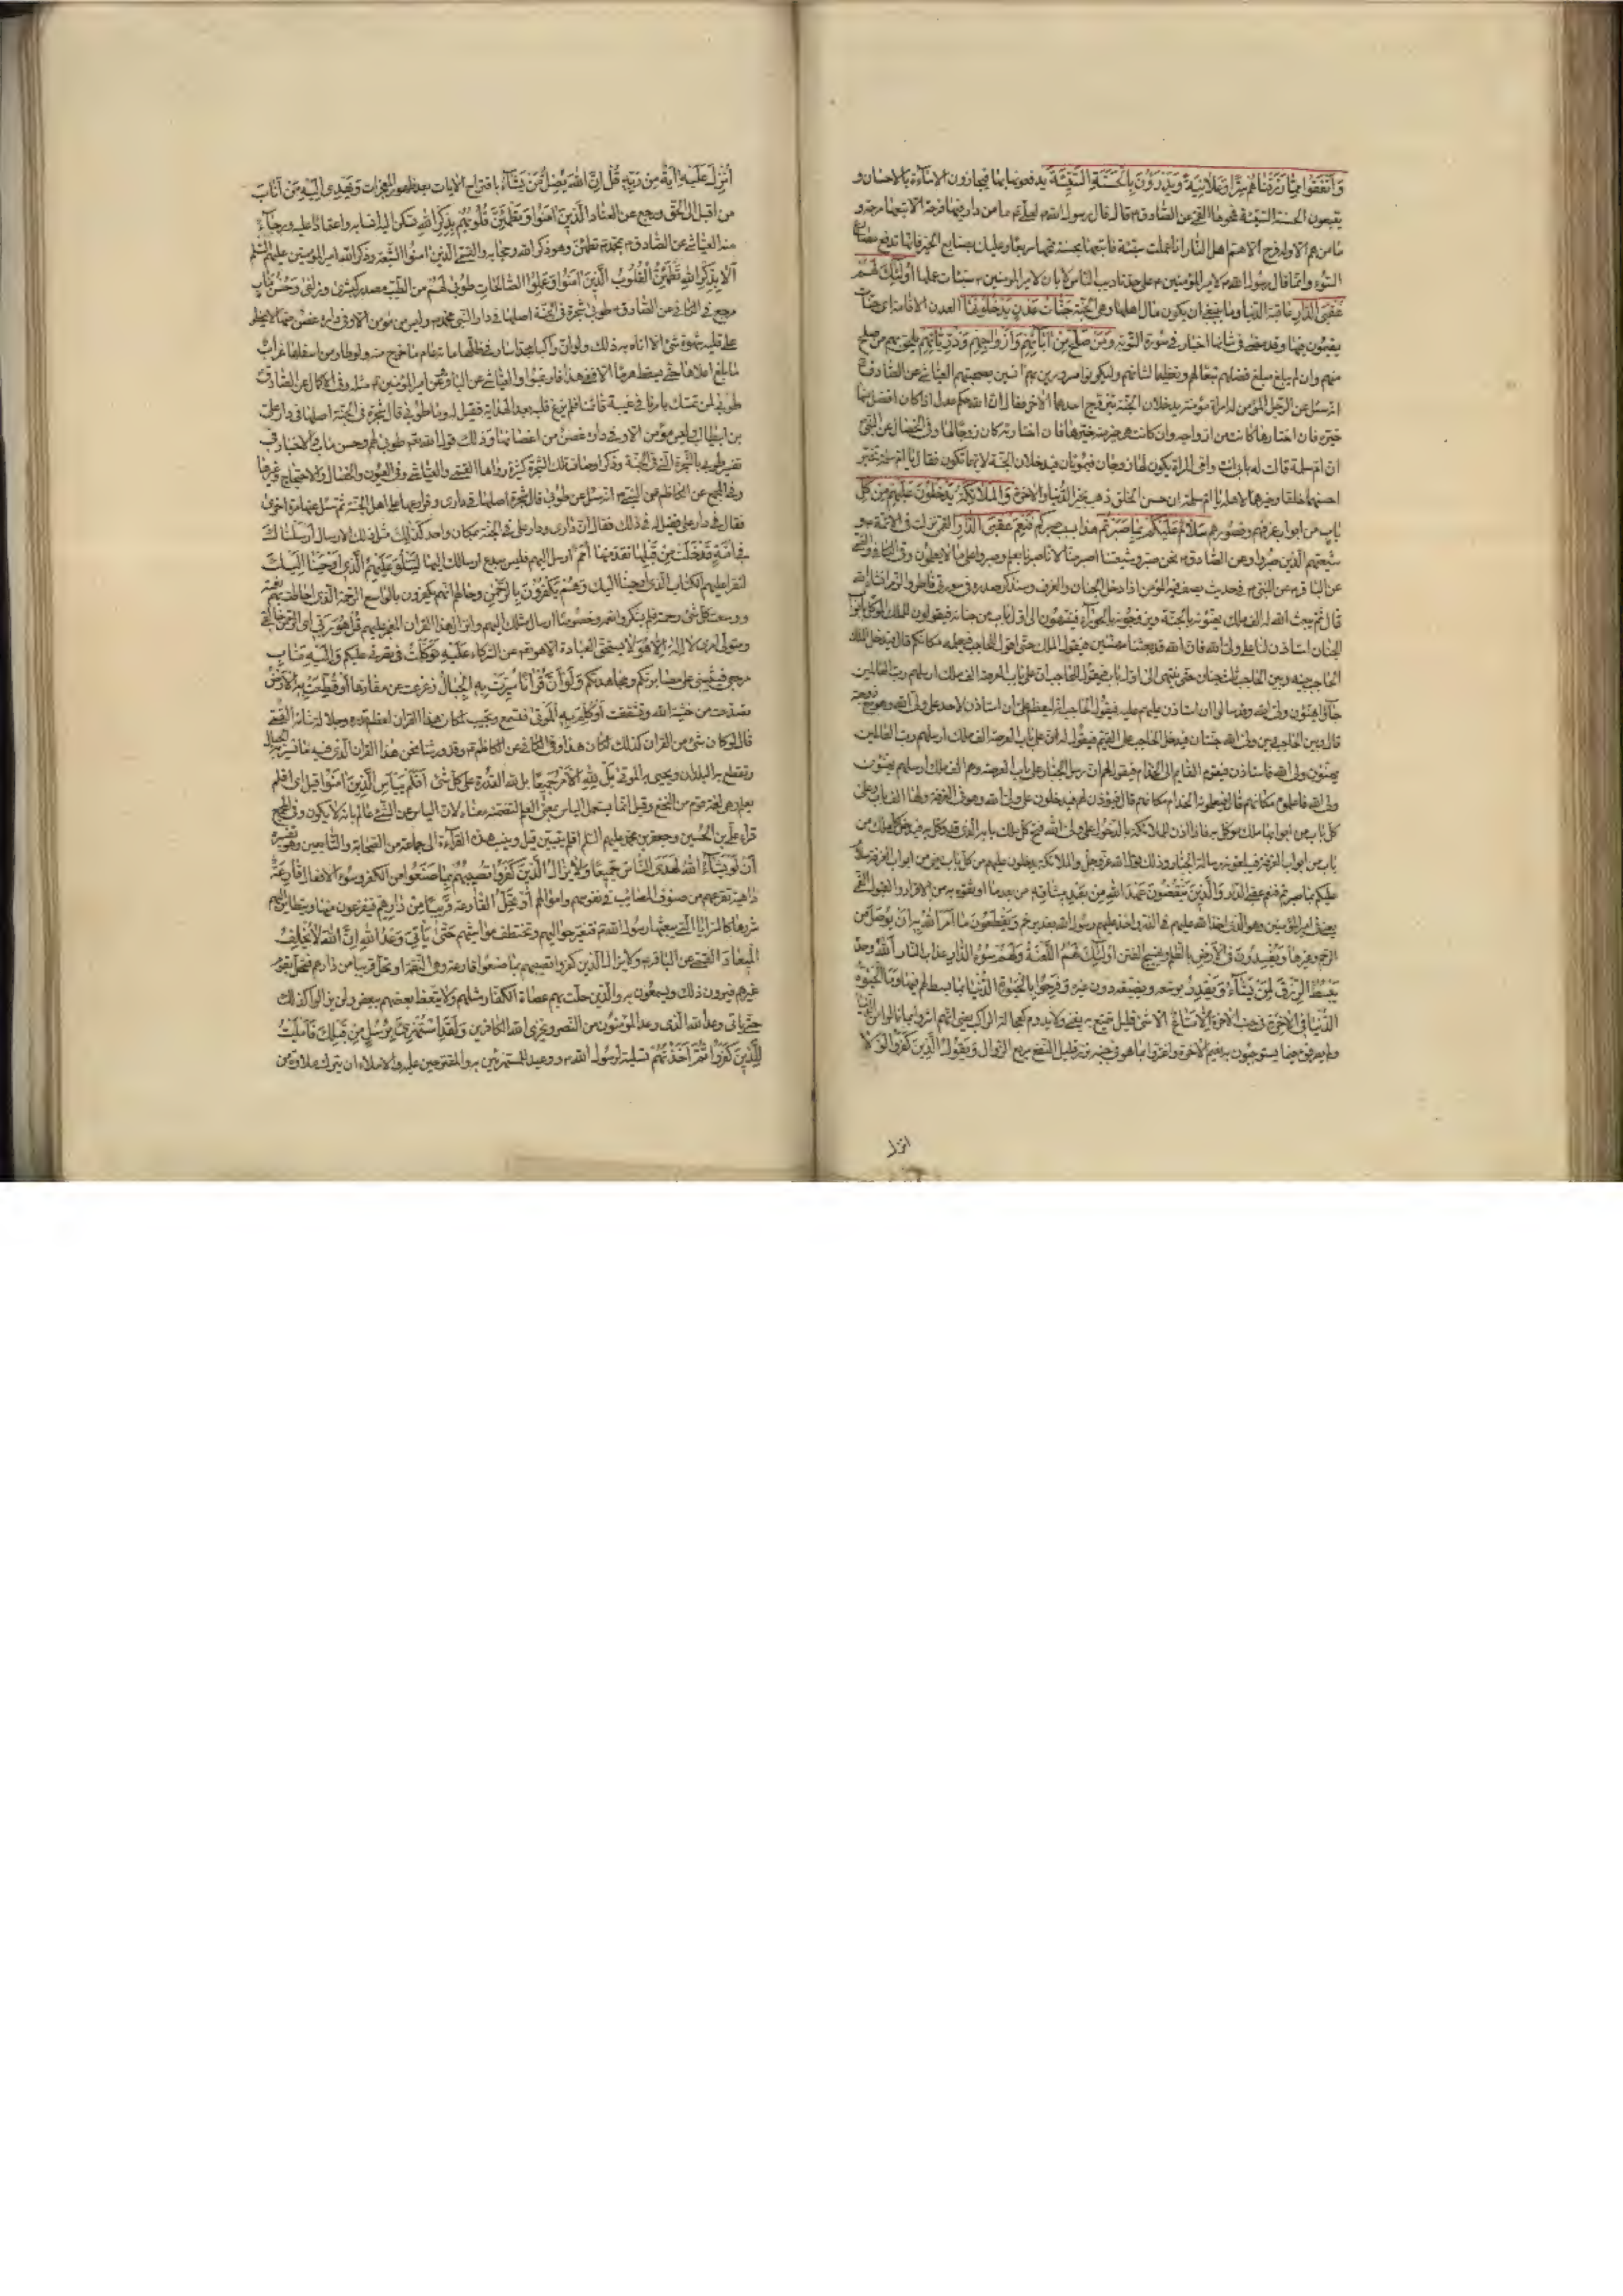 وَأَنْفَقُوا مِمَّا رَزَقْنَاهُمْ سِرًّا وَعَلَانِيَةً وَيَدْرَؤُنَ بِالْحَسَنَةِ السَّيِّئَةَ يدفعونها بها فيجازون الاساءة بالاحسان و
يتبعون الحسنة السيئة فتمحوها القمي عن الصادق ع قال قال رسول الله ص لعلي ع ما من دار فيها فرحة الا تبعها ترحة و
ما من هم الا وله فرج الا هم اهل النار اذا عملت سيئة فاتبعها بحسنة تمحها سريعا وعليك بصنايع الخير فانها تدفع مصارع
السوء وانما قال رسول الله ص لامير المؤمنين ع على حد تاديب الناس لا بان لامير المؤمنين ع سيئات عملها أُولَئِكَ لَهُمْ
عُقْبَى الدَّارِ عاقبة الدنيا وما ينبغي ان يكون مال اهلها وهي الجنة جَنَّاتُ عَدْنٍ يَدْخُلُونَهَا العدن الاقامة اي جنات
يقيمون فيها وقد مضى في شانها اخبار في سورة التوبة وَمَنْ صَلَحَ مِنْ آبَائِهِمْ وَأَزْوَاجِهِمْ وَذُرِّيَّاتِهِمْ يلحق بهم من صلح
منهم وان لم يبلغ مبلغ فضلهم تبعا لهم وتعظيما لشانهم وليكونوا مسرورين بهم آنسين بصحبتهم العياشي عن الصادق ع
انه سئل عن الرجل المؤمن له امراة مؤمنة يدخلان الجنة يتزوج احدهما الاخر فقال ان الله حكم عدل اذا كان افضل منها
خيره فان اختارها كانت من ازواجه وان كانت هي خيرا منه خيرها فان اختارته كان زوجا لها وفي الخصال عن النبي ص
ان ام سلمة قالت له بابي انت وامي المراة يكون لها زوجان فيموتان فيدخلان الجنة لايهما تكون فقال يا ام سلمة تخير
احسنهما خلقا وخيرهما لاهله يا ام سلمة ان حسن الخلق ذهب بخير الدنيا والاخرة وَالْمَلَائِكَةُ يَدْخُلُونَ عَلَيْهِمْ مِنْ كُلِّ
بَابٍ من ابواب غرفهم وقصورهم سَلَامٌ عَلَيْكُمْ بِمَا صَبَرْتُمْ هذا بسبب صبركم فَنِعْمَ عُقْبَى الدَّارِ القمي نزلت في الائمة ع و
شيعتهم الذين صبروا وعن الصادق ع نحن صبر وشيعتنا اصبر منا لانا صبرنا بعلم وصبروا على ما لا يعلمون وفي الكافي والقمي
عن الباقر ع عن النبي ص في حديث يصف فيه المؤمن اذا دخل الجنان والغرف وسنذكر صدره في سورتي فاطر والزمر انشاء الله
قال ثم يبعث الله له الف ملك يهنئونه بالجنة ويزوجونه بالحوراء فينتهون الى اول باب من جنانه فيقولون للملك الموكل بابواب
الجنان استاذن لنا على ولي الله فان الله قد بعثنا مهنئين فيقول الملك حتى اقول للحاجب فيعلمه مكانكم قال فيدخل الملك
الحاجب وبينه وبين الحاجب ثلث جنان حتى ينتهي الى اول باب فيقول للحاجب ان على باب العرصة الف ملك ارسلهم رب العالمين
جاؤا يهنئون ولي الله وقد سالوا ان استاذن لهم عليه فيقول الحاجب انه ليعظم علي ان استاذن لاحد على ولي الله وهو مع زوجته
قال وبين الحاجب وبين ولي الله جنتان فيدخل الحاجب على القيم فيقول له ان على باب العرصة الف ملك ارسلهم رب العالمين
يهنئون ولي الله فاستاذن فيقوم القيم الى الخدام فيقول لهم ان رسل الجبار على باب العرصة وهم الف ملك ارسلهم يهنئون
ولي الله فاعلموه مكانهم قال فيعلمونه الخدام مكانهم قال فيؤذن لهم فيدخلون على ولي الله وهو في الغرفة ولها الف باب وعلى
كل باب من ابوابها ملك موكل به فاذا اذن للملائكة بالدخول على ولي الله فتح كل ملك بابه الذي قد وكل به فيدخل كل ملك من
باب من ابواب الغرفة فيبلغونه رسالة الجبار وذلك قول الله عز وجل والملائكة يدخلون عليهم من كل باب من ابواب الغرفة سلام
عليكم بما صبرتم فنعم عقبى الدار وَالَّذِينَ يَنْقُضُونَ عَهْدَ اللَّهِ مِنْ بَعْدِ مِيثَاقِهِ من بعد ما اوثقوه به من الاقرار والقبول القمي
يعني في امير المؤمنين وهو الذي اخذ الله عليهم في الذر واخذ عليهم رسول الله بغدير خم وَيَقْطَعُونَ مَا أَمَرَ اللَّهُ بِهِ أَنْ يُوصَلَ من
الرحم وغيرها وَيُفْسِدُونَ فِي الْأَرْضِ بالظلم وتهييج الفتن أُولَئِكَ لَهُمُ اللَّعْنَةُ وَلَهُمْ سُوءُ الدَّارِ عذاب النار اللَّهُ وحده
يَبْسُطُ الرِّزْقَ لِمَنْ يَشَاءُ وَيَقْدِرُ يوسعه ويضيقه دون غيره وَفَرِحُوا بِالْحَيَوةِ الدُّنْيَا بما بسط لهم فيها وَمَا الْحَيَوةُ
الدُّنْيَا فِي الْآخِرَةِ في جنب الاخرة إِلَّا مَتَاعٌ الا شيء قليل يتمتع به يفنى ولا يدوم كعجالة الراكب يعني انهم اشروا بما نالوا من الدنيا
ولم يصرفوه فيما يستوجبون به نعيم الاخرة واغتروا بما هو في جنبه نزر قليل النفع سريع الزوال وَيَقُولُ الَّذِينَ كَفَرُوا لَوْلَا
انزل
أُنْزِلَ عَلَيْهِ آيَةٌ مِنْ رَبِّهِ قُلْ إِنَّ اللَّهَ يُضِلُّ مَنْ يَشَاءُ باقتراح الايات بعد ظهور المعجزات وَيَهْدِي إِلَيْهِ مَنْ أَنَابَ
من اقبل الى الحق ورجع عن العناد الَّذِينَ آمَنُوا وَتَطْمَئِنُّ قُلُوبُهُمْ بِذِكْرِ اللَّهِ تسكن اليه انسا به واعتمادا عليه ورجاء
منه العياشي عن الصادق ع بمحمد ص تطمئن وهو ذكر الله وحجابه والقمي الذين آمنوا الشيعة وذكر الله امير المؤمنين عليهم السلم
أَلَا بِذِكْرِ اللَّهِ تَطْمَئِنُّ الْقُلُوبُ الَّذِينَ آمَنُوا وَعَمِلُوا الصَّالِحَاتِ طُوبَى لَهُمْ من الطيب مصدر كبشرى وزلفى وَحُسْنُ مَآبٍ
مرجع في الكافي عن الصادق ع طوبى شجرة في الجنة اصلها في دار النبي محمد ص وليس من مؤمن الا وفي داره غصن منها لا يخطر
على قلبه شهوة شيء الا اتاه به ذلك ولو ان راكبا مجدا سار في ظلها مائة عام ما خرج منه ولو طار من اسفلها غراب
ما بلغ اعلاها حتى يسقط هرما الا ففي هذا فارغبوا والعياشي عن الباقر ع عن امير المؤمنين ع مثله وفي الاكمال عن الصادق ع
طوبى لمن تمسك بامرنا في غيبة قائمنا فلم يزغ قلبه بعد الهداية فقيل له وما طوبى قال شجرة في الجنة اصلها في دار علي
بن ابيطالب وليس مؤمن الا وفي داره غصن من اغصانها وذلك قول الله تعم طوبى لهم وحسن مآب والاخبار في
تفسير طوبى بالشجرة التي في الجنة وذكر اوصاف تلك الشجرة كثيرة رواها القمي والعياشي وفي العيون والخصال والاحتجاج وغيرها
وفي المجمع عن الكاظم عن النبي ص انه سئل عن طوبى قال شجرة اصلها في داري وفرعها على اهل الجنة ثم سئل عنها مرة اخرى
فقال في دار علي فقيل له في ذلك فقال ان داري ودار علي في الجنة بمكان واحد كَذَلِكَ مثل ذلك الارسال أَرْسَلْنَاكَ
فِي أُمَّةٍ قَدْ خَلَتْ مِنْ قَبْلِهَا تقدمتها أُمَمٌ ارسل اليهم فليس ببدع ارسالك اليها لِتَتْلُوَ عَلَيْهِمُ الَّذِي أَوْحَيْنَا إِلَيْكَ
لتقرا عليهم الكتاب الذي اوحينا اليك وَهُمْ يَكْفُرُونَ بِالرَّحْمَنِ وحالهم انهم يكفرون بالواسع الرحمة الذي احاطت بهم نعمته
ووسعت كل شيء رحمته فلم يشكروا نعمه وخصوصا ارسال مثلك اليهم وانزال هذا القران المعجز عليهم قُلْ هُوَ رَبِّي اي الرحمن خالقي
ومتولي امري لَا إِلَهَ إِلَّا هُوَ لا يستحق العبادة الا هو تعم عن الشركاء عَلَيْهِ تَوَكَّلْتُ في نصرتي عليكم وَإِلَيْهِ مَتَابِ
مرجعي فيثيبني على مصابرتكم ومجاهدتكم وَلَوْ أَنَّ قُرْآنًا سُيِّرَتْ بِهِ الْجِبَالُ زعزعت عن مقارها أَوْ قُطِّعَتْ بِهِ الْأَرْضُ
تصدعت من خشية الله وتشققت أَوْ كُلِّمَ بِهِ الْمَوْتَى فتسمع وتجيب لكان هذا القران لعظم قدره وجلالة شانه القمي
قال لو كان شيء من القران كذلك لكان هذا وفي الكافي عن الكاظم ع وقد ورثنا نحن هذا القران الذي فيه ما تسير به الجبال
وتقطع به البلدان ويحيى به الموتى بَلْ لِلَّهِ الْأَمْرُ جَمِيعًا بل لله القدرة على كل شيء أَفَلَمْ يَيْأَسِ الَّذِينَ آمَنُوا قيل اي افلم
يعلم وهي لغة قوم من النخع وقيل انما يستعمل الياس بمعنى العلم لتضمنه معناه لان اليائس عن الشيء عالم بانه لا يكون وفي المجمع
قراء علي بن الحسين وجعفر بن محمد عليهم السلم افلم يتبين قيل وينسب هذه القراءة الى جماعة من الصحابة والتابعين وهو تفسيره
أَنْ لَوْ يَشَاءُ اللَّهُ لَهَدَى النَّاسَ جَمِيعًا وَلَا يَزَالُ الَّذِينَ كَفَرُوا تُصِيبُهُمْ بِمَا صَنَعُوا من الكفر وسوء الافعال قَارِعَةٌ
داهية تقرعهم من صنوف المصائب في نفوسهم واموالهم أَوْ تَحُلُّ القارعة قَرِيبًا مِنْ دَارِهِمْ فيفزعون منها ويتطاير اليهم
شررها كالسرايا التي يبعثها رسول الله ص فتغير حواليهم وتختطف مواشيهم حَتَّى يَأْتِيَ وَعْدُ اللَّهِ إِنَّ اللَّهَ لَا يُخْلِفُ
الْمِيعَادَ القمي عن الباقر ع ولا يزال الذين كفروا تصيبهم بما صنعوا قارعة وهي النقمة او تحل قريبا من دارهم فتحل بقوم
غيرهم فيرون ذلك ويسمعون به والذين حلت بهم عصاة الكفار مثلهم ولا يتعظ بعضهم ببعض ولن يزالوا كذلك
حتى ياتي وعد الله الذي وعد المؤمنون من النصر ويخزي الله الكافرين وَلَقَدِ اسْتُهْزِئَ بِرُسُلٍ مِنْ قَبْلِكَ فَأَمْلَيْتُ
لِلَّذِينَ كَفَرُوا ثُمَّ أَخَذْتُهُمْ تسلية لرسول الله ص ووعيد للمستهزئين به والمقترحين عليه والاملاء ان يترك ملاوة من